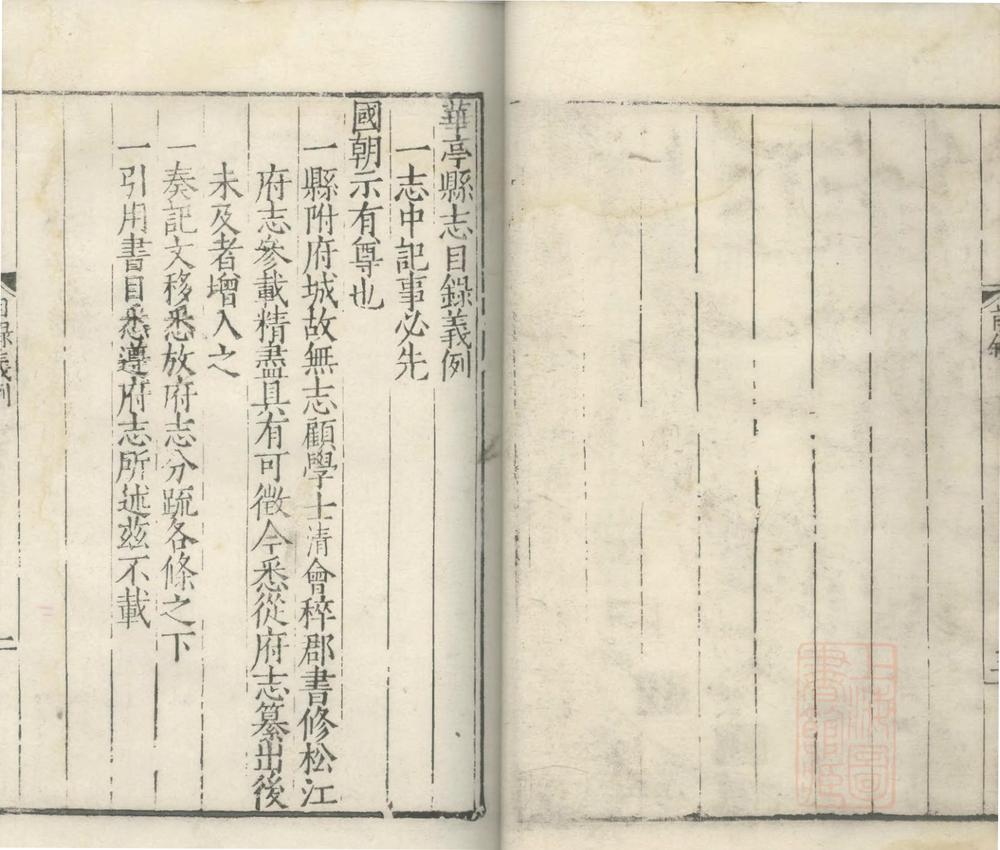 華亭縣志目錄義例
一志中記事必先
國朝示有尊也
一縣附府城故無志顧學士清會稡郡書修松江
府志參載精盡具有可徵今悉從府志纂出後
未及者增入之
一奏記文移悉放府志分䟽各條之下
一引用書目悉遵府志所述茲不載
目錄義例